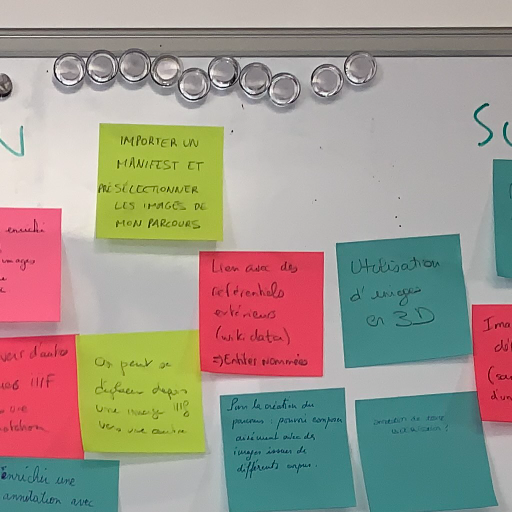 N
SU
IMPORTER UN
MANIFEST ET
PRÉSÉLECTIONNER
LES IMAGES DE
MON PARCOURS
enrichi
images
Lien avec des
référentiels
extérieurs
(wikidata)
=> Entités nommées
Utilisation
d'images
en 3D
Ima
(sa
d'un
vers d'autres
IIIF
une
notation
On peut se
déplacer depuis
une image IIIF
vers une autre
Pour la création du
parcours : pouvoir composer
aisément avec des
images issues de
différents corpus.
enrichir une
annotation avec